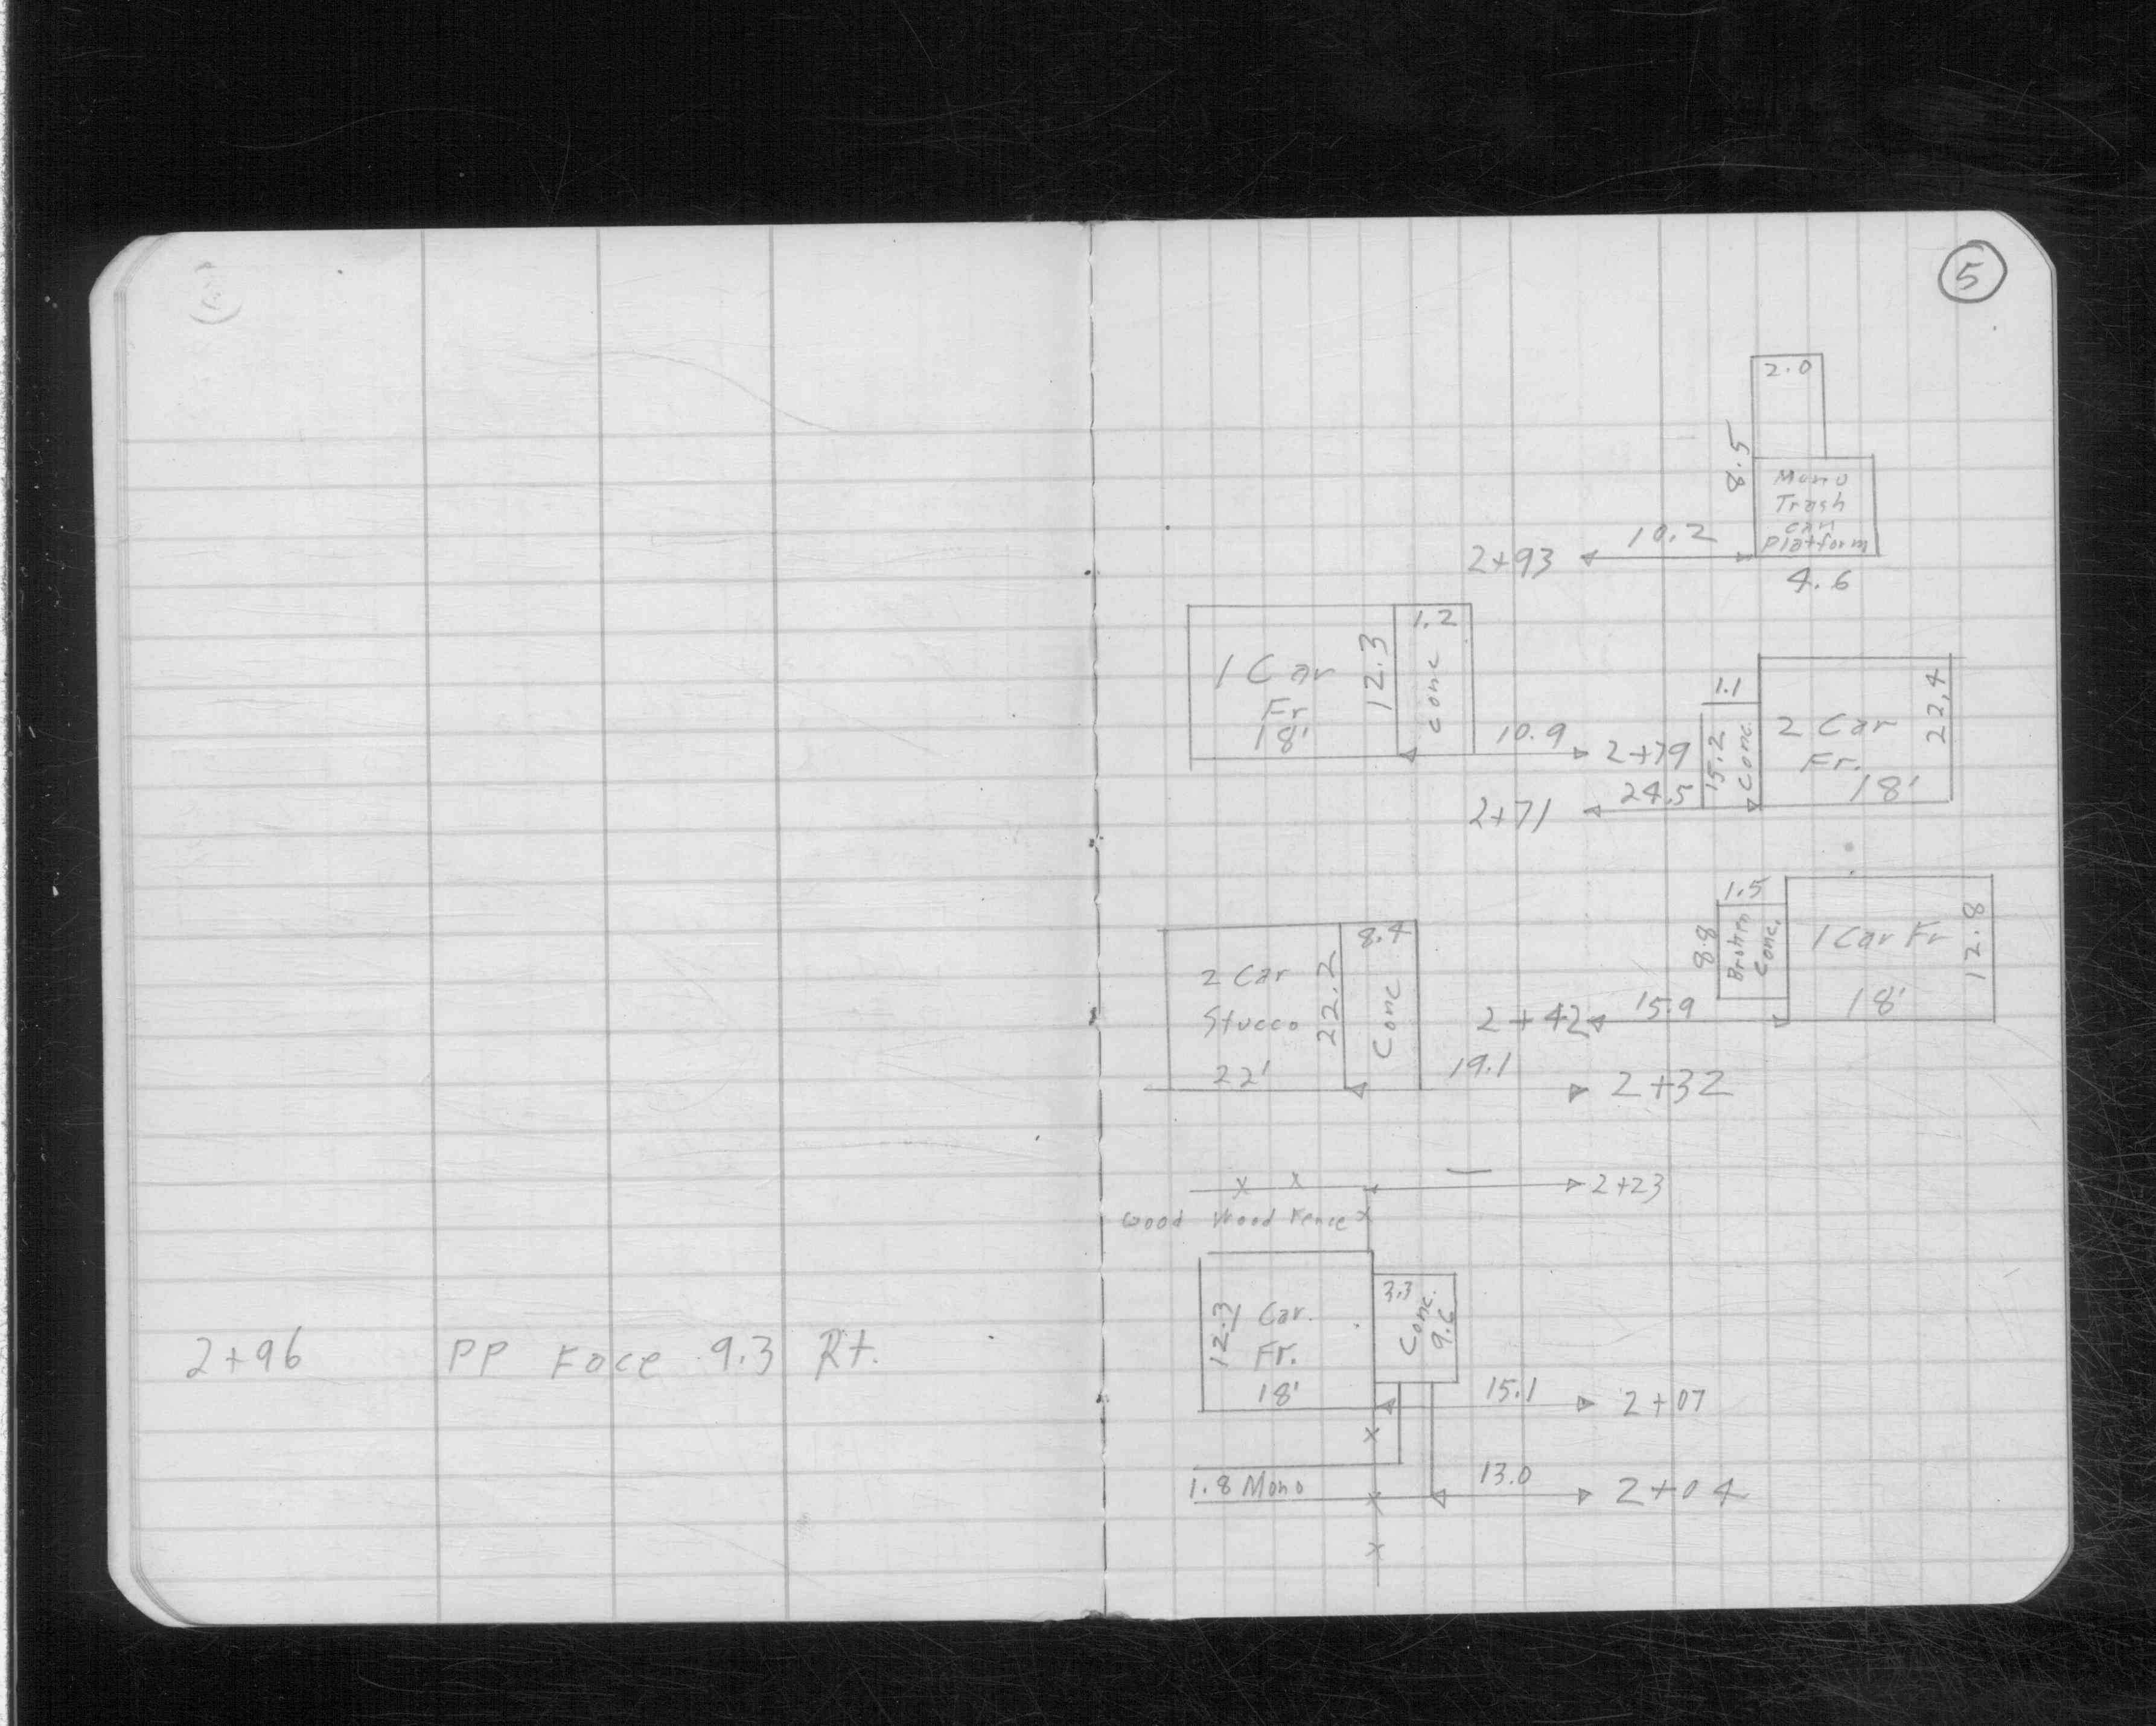 2+96 PP Face 9.3 Rt.
5
2.0
8.5
Mono
Trash
can
Platform
10.2
2+93
4.6
1.2
1 Car
Fr
18'
12.3
conc
10.9
2+79
1.1
15.2
conc.
2 Car
Fr.
18'
22.4
24.5
2+71
1.5
8.8
Brokn
Conc.
1 Car Fr
18'
12.8
15.9
2+42
8.4
2 Car
Stucco
22'
22.2
Conc
19.1
2+32
2+23
wood Wood Fence
12.3
1 Car.
Fr.
18'
3.3
Conc.
9.6
15.1
2+07
1.8 Mono
13.0
2+04